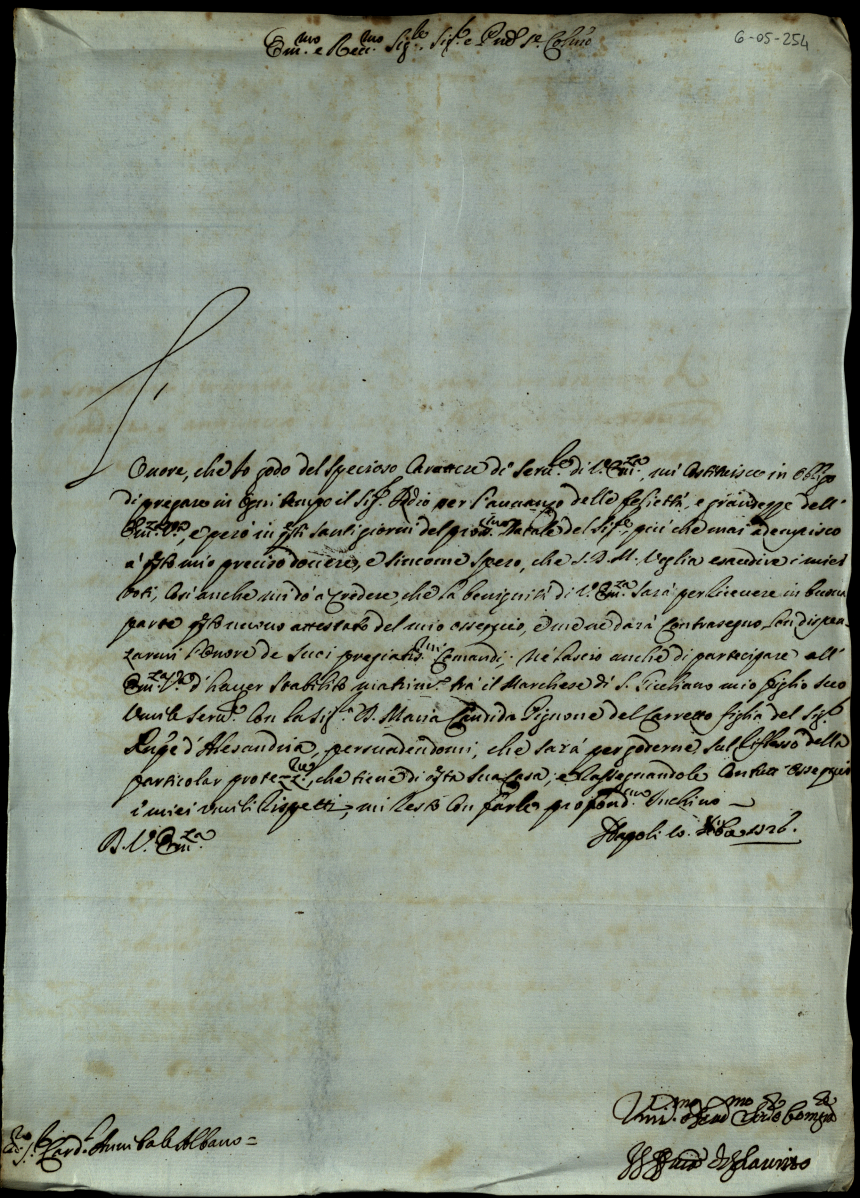 Em.mo e Rev.mo Sig.re, Sig.r e P.ron Col.mo
6-05-254
L'onore, che Io godo del specioso Carattere di Serv.re di V.ra Em.za, mi Costituisce in obligo
di pregare in ogni tempo il Sig.r Iddio per l'avvanzo delle felicità, e grandezze dell'
Em.za V.ra, e però in q.sti santi giorni del pross.mo Natale del Sig.re, più che mai adempisco
à q.sto mio preciso dovere, e sincome spero, che S. D. M. Voglia esaudire i miei
voti, Così anche mi dò a Credere, che la benignità di V.ra Em.za sarà per ricevere in buona
parte q.sto nuovo attestato del mio ossequio, e me ne darà Contrasegno, Con dispen-
zarmi l'onore de suoi pregiatis.mi Comandi; Nè lascio anche di partecipare all'
Em.za V.ra d'haver stabilito matrim.o trà il Marchese di S. Giuliano mio figlio suo
Umile Serv.re Con la Sig.ra D. Maria Candida Pignone del Carretto figlia del Sig.r
P.npe d'Alesandria, persuadendomi, che sarà per goderne sul riflesso della
particolar protez.ne, che tiene di q.sta sua Casa, e rassegnandole Con tutt'ossequio
i miei umili rispetti, mi resto Con farle profond.mo Inchino
D. V.ra Em.za
Napoli 10. Xbre 1726.
S.r Card.l Annibale Albano =